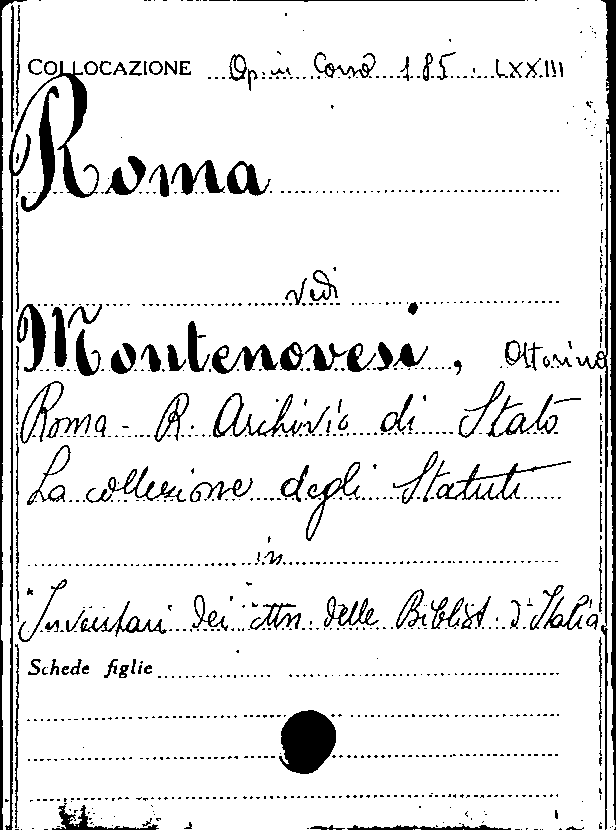 COLLOCAZIONE Op. in Corso 185. LXXIII
Roma
vedi
Montenovesi, Ottorino
Roma - R. Archivio di Stato
La collezione degli Statuti
in
"Inventari dei Mn. delle Bibliot. d'Italia
Schede figlie